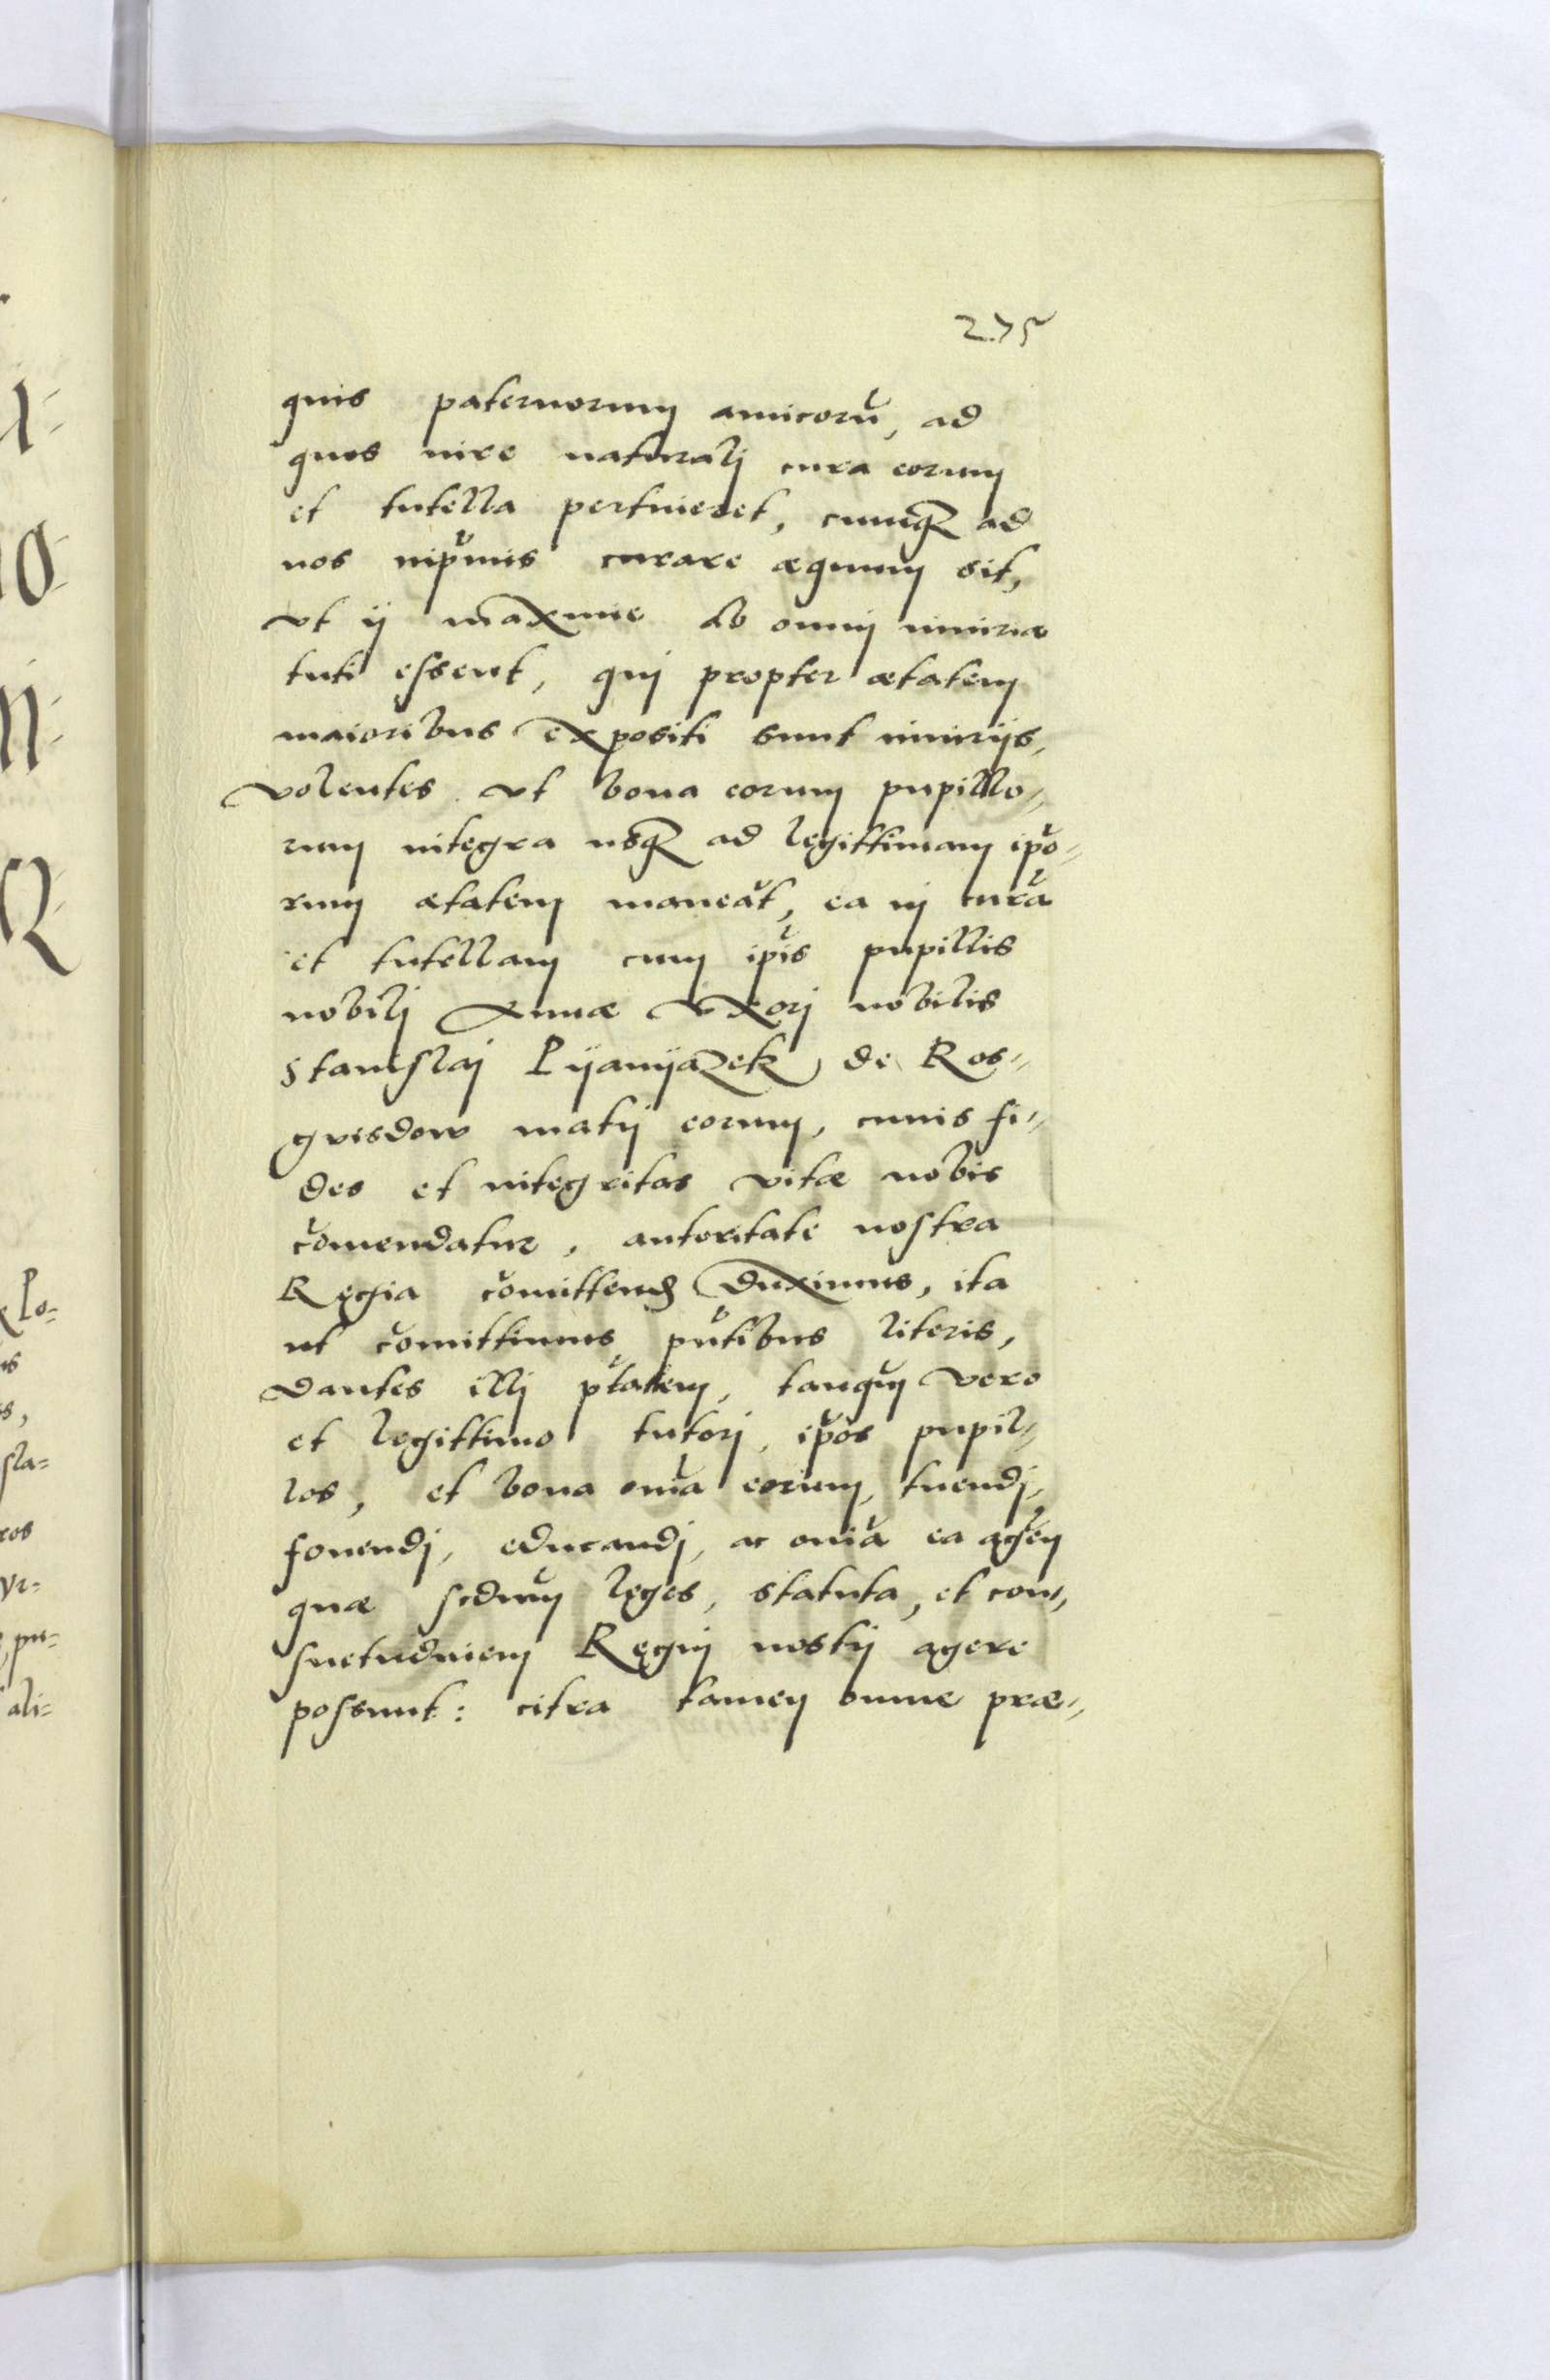 275
quis paternorum amicorũ, ad
quos iure naturalj cura eorum
et tutella pertineret, cumq; ad
nos inprimis curare æquum sit,
vt ij maxime ab omnj iniuria
tuti essent, quj propter ætatem
maioribus expositi sunt iniurijs,
volentes vt bona eorum pupillo-
rum integra usq; ad legittimam ipo-
rum ætatem maneãt, ea in curã
et tutellam cum ip̃is pupillis
nobilj Annæ vxorj nobilis
Stanislaj Pijanijazek de Ros-
gvisdow matrj eorum, cuius fi-
des et integritas vitæ nobis
com̃endatur, autoritate nostra
Regia com̃ittend duximus, ita
ut com̃ittimus pñtibus literis,
dantes illj ptãtem, tanqm̃ vero
et legittimo tutorj, ip̃os pupil-
los, et bona om̃ia eorum, tuendj,
fouendj, educandj, ac om̃ia ea agen̄
quæ scdum̃ leges, statuta, et con-
suetudinem Regnj nostrj agere
possunt: citra tamen omne præ-
Lo-
s,
sla-
ros
pu-
ali-